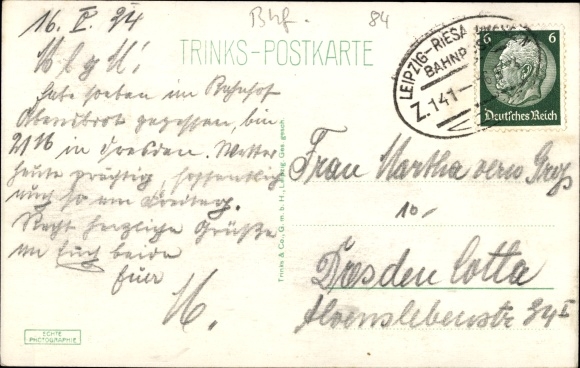 Bhf. 84
16. V. 34
TRINKS-POSTKARTE
LEIPZIG-RIESA
BAHNP
Z.141
6 6
Deutsches Reich
habe soeben im Bahnhof
Abendbrot gegessen, bin
21 16 in Dresden. Wetter
heute prächtig, hoffentlich
auch so am
Recht herzliche Grüße
an Euch beide
Euer
M.
Frau Martha verw.
10,-
Dresden Cotta
Alvenslebenstr 34 I
Trinks & Co., G. m. b. H., Leipzig Ges. gesch.
ECHTE
PHOTOGRAPHIE